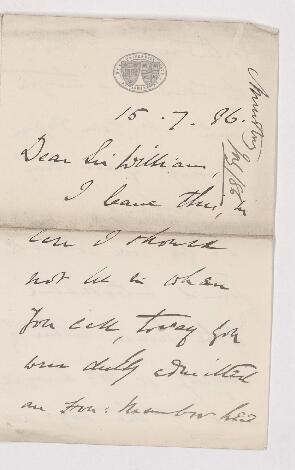 15.7.86.
Dear Sir William,
I leave this, in
case I should
not be in when
you call, to say you
were duly admitted
an Hon: Member